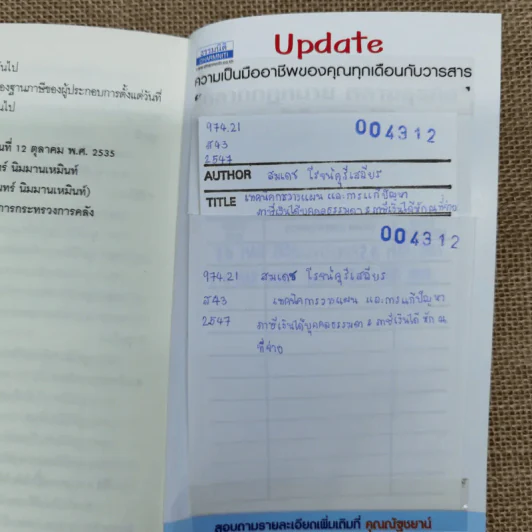 นไป
องฐานภาษีของผู้ประกอบการตั้งแต่วันที่
นไป
นที่ 12 ตุลาคม พ.ศ. 2535
ร์ นิมมานเหมินท์
ทร์ นิมมานเหมินท์)
การกระทรวงการคลัง
ธรรมนิติ
DHARMNITI
Update
ความเป็นมืออาชีพของคุณทุกเดือนกับวารสาร
974.21 004312
ส43
2547
AUTHOR สมเดช โรจน์คุรีเสถียร
TITLE เทคนิคการวางแผน และการแก้ปัญหา
ภาษีเงินได้บุคคลธรรมดา & ภาษีเงินได้หัก ณ ที่จ่าย
004312
974.21 สมเดช โรจน์คุรีเสถียร
ส43 เทคนิคการวางแผน และการแก้ปัญหา
2547 ภาษีเงินได้บุคคลธรรมดา & ภาษีเงินได้ หัก ณ
ที่จ่าย
สอบถามรายละเอียดเพิ่มเติมที่ คุณณัฐชยาน์